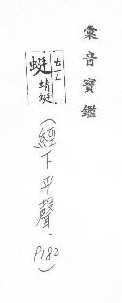 彙音寶鑑
蜓 蜻蜓
(經下平聲.
P182)